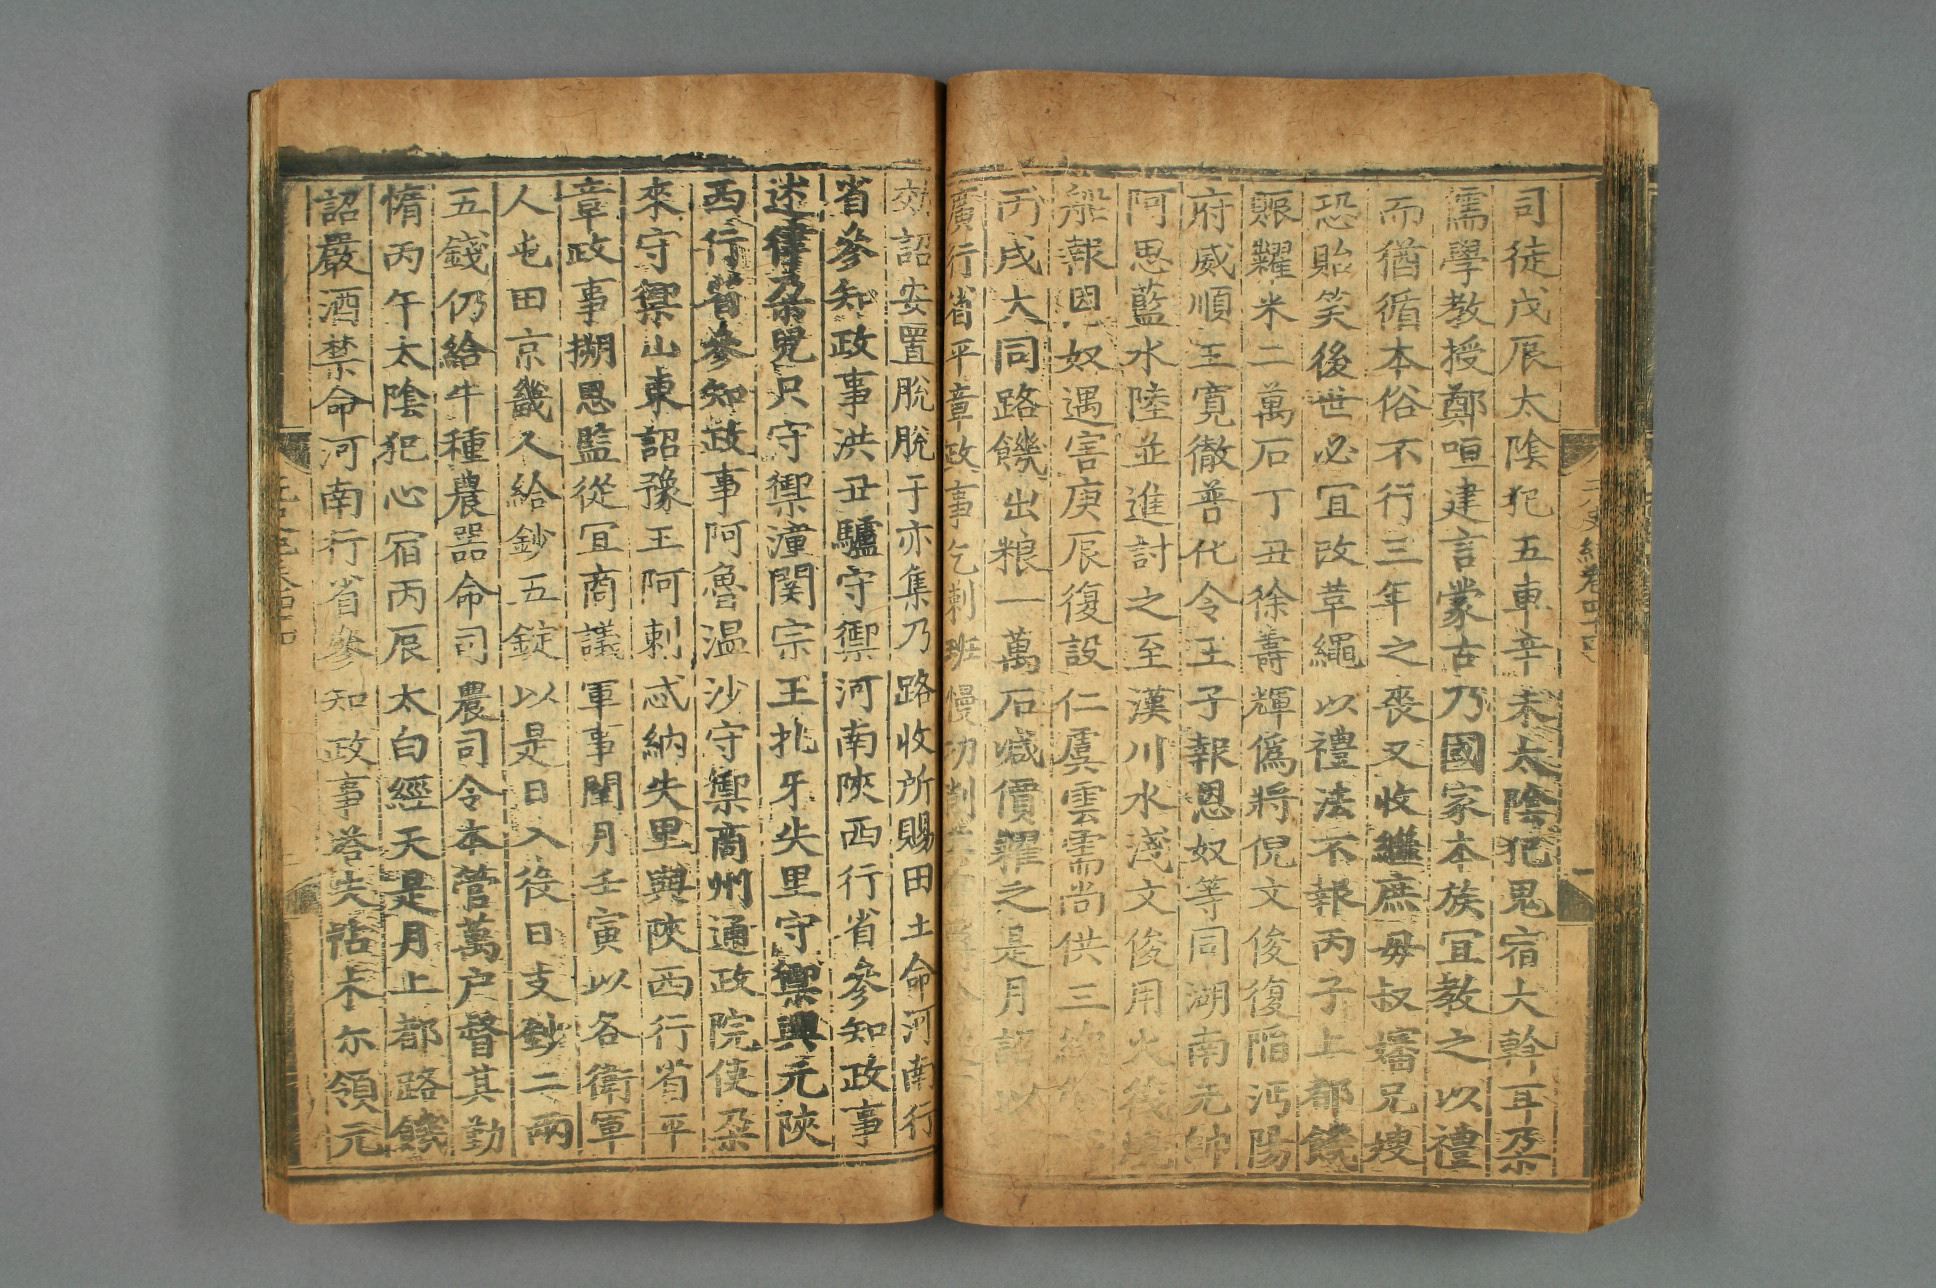 司徒戊辰太陰犯五車辛未太陰犯鬼宿大斡耳朶
儒學教授鄭咺建言蒙古乃國家本族宜教之以禮
而猶循本俗不行三年之喪又收繼庶母叔嬸兄嫂
恐貽笑後世必宜改革繩以禮法不報丙子上都饑
賑糶米二萬石丁丑徐壽輝僞將倪文俊復陷沔陽
府威順王寛徹普化令王子報恩奴等同湖南元帥
阿思藍水陸並進討之至漢川水淺文俊用火筏燒
船報恩奴遇害庚辰復設仁虞雲需尚供三總
丙戌大同路饑出粮一萬石减價糶之是月詔以
廣行省平章政事乞剌班
效詔安置脫脫于亦集乃路收所賜田土命河南行
省參知政事洪丑驢守禦河南陜西行省參知政事
述律朶兒只守禦潼関宗王扎牙失里守禦興元陜
西行省參知政事阿魯温沙守禦商州通政院使朶
來守禦山東詔豫王阿剌忒納失里與陜西行省平
章政事搠思監從宜商議軍事閏月壬寅以各衛軍
人屯田京畿人給鈔五錠以是日入役日支鈔二兩
五錢仍給牛種農器命司農司令本管萬户督其勤
惰丙午太陰犯心宿丙辰太白經天是月上都路饑
詔嚴酒禁命河南行省參知政事塔失帖木尔領元